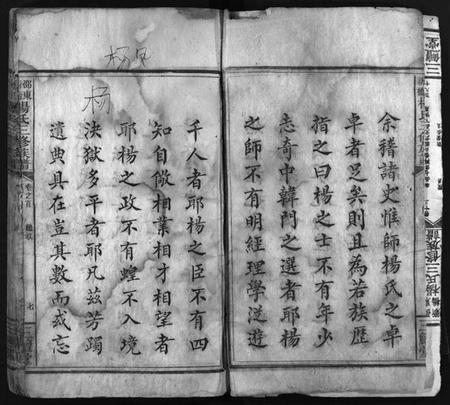 余禧諱史惟師楊氏之卓
卓者足矣則且為若族歷
指之曰楊之士不有年少
志奇中韓門之選者耶楊
之師不有明經理學從遊
千人者耶楊之臣不有四
知自儆相業相才相望者
耶楊之政不有蝗不入境
決獄多平者耶凡茲芳躅
遺典具在豈其數而或忘
楊